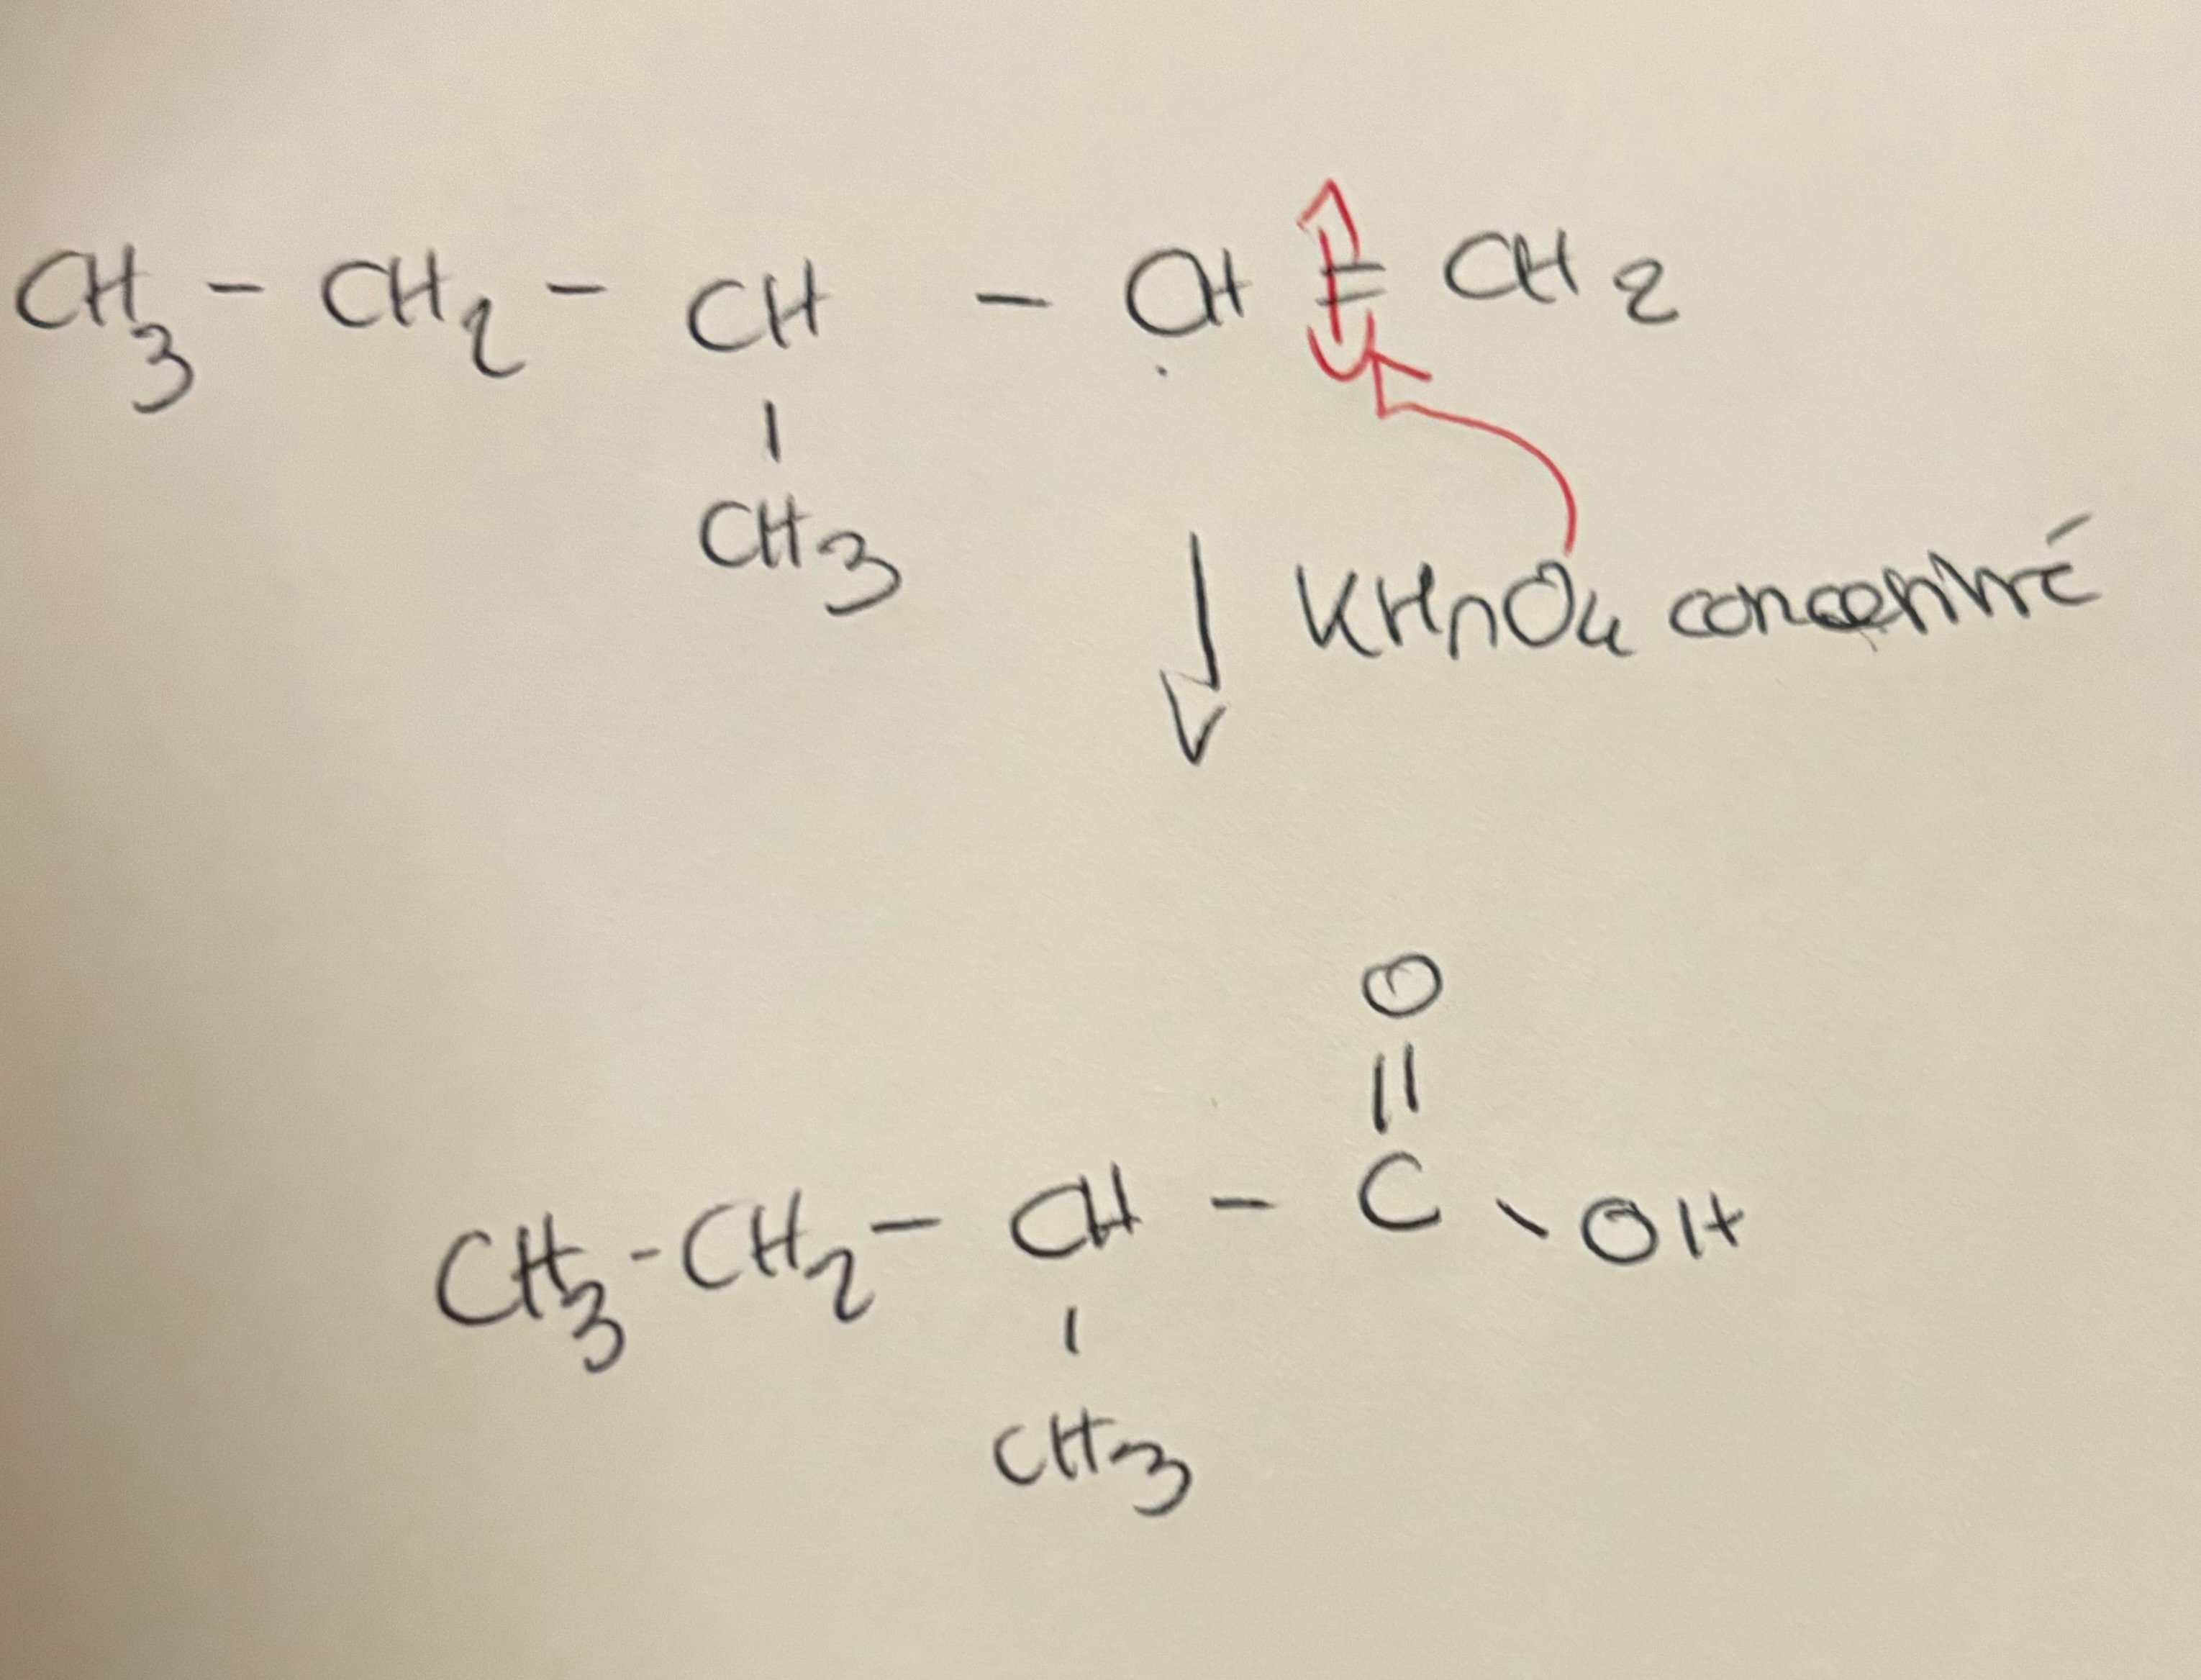 CH3 - CH2 - CH - CH = CH2
CH3
KMnO4 concentré
O
CH3 - CH2 - CH - C - OH
CH3